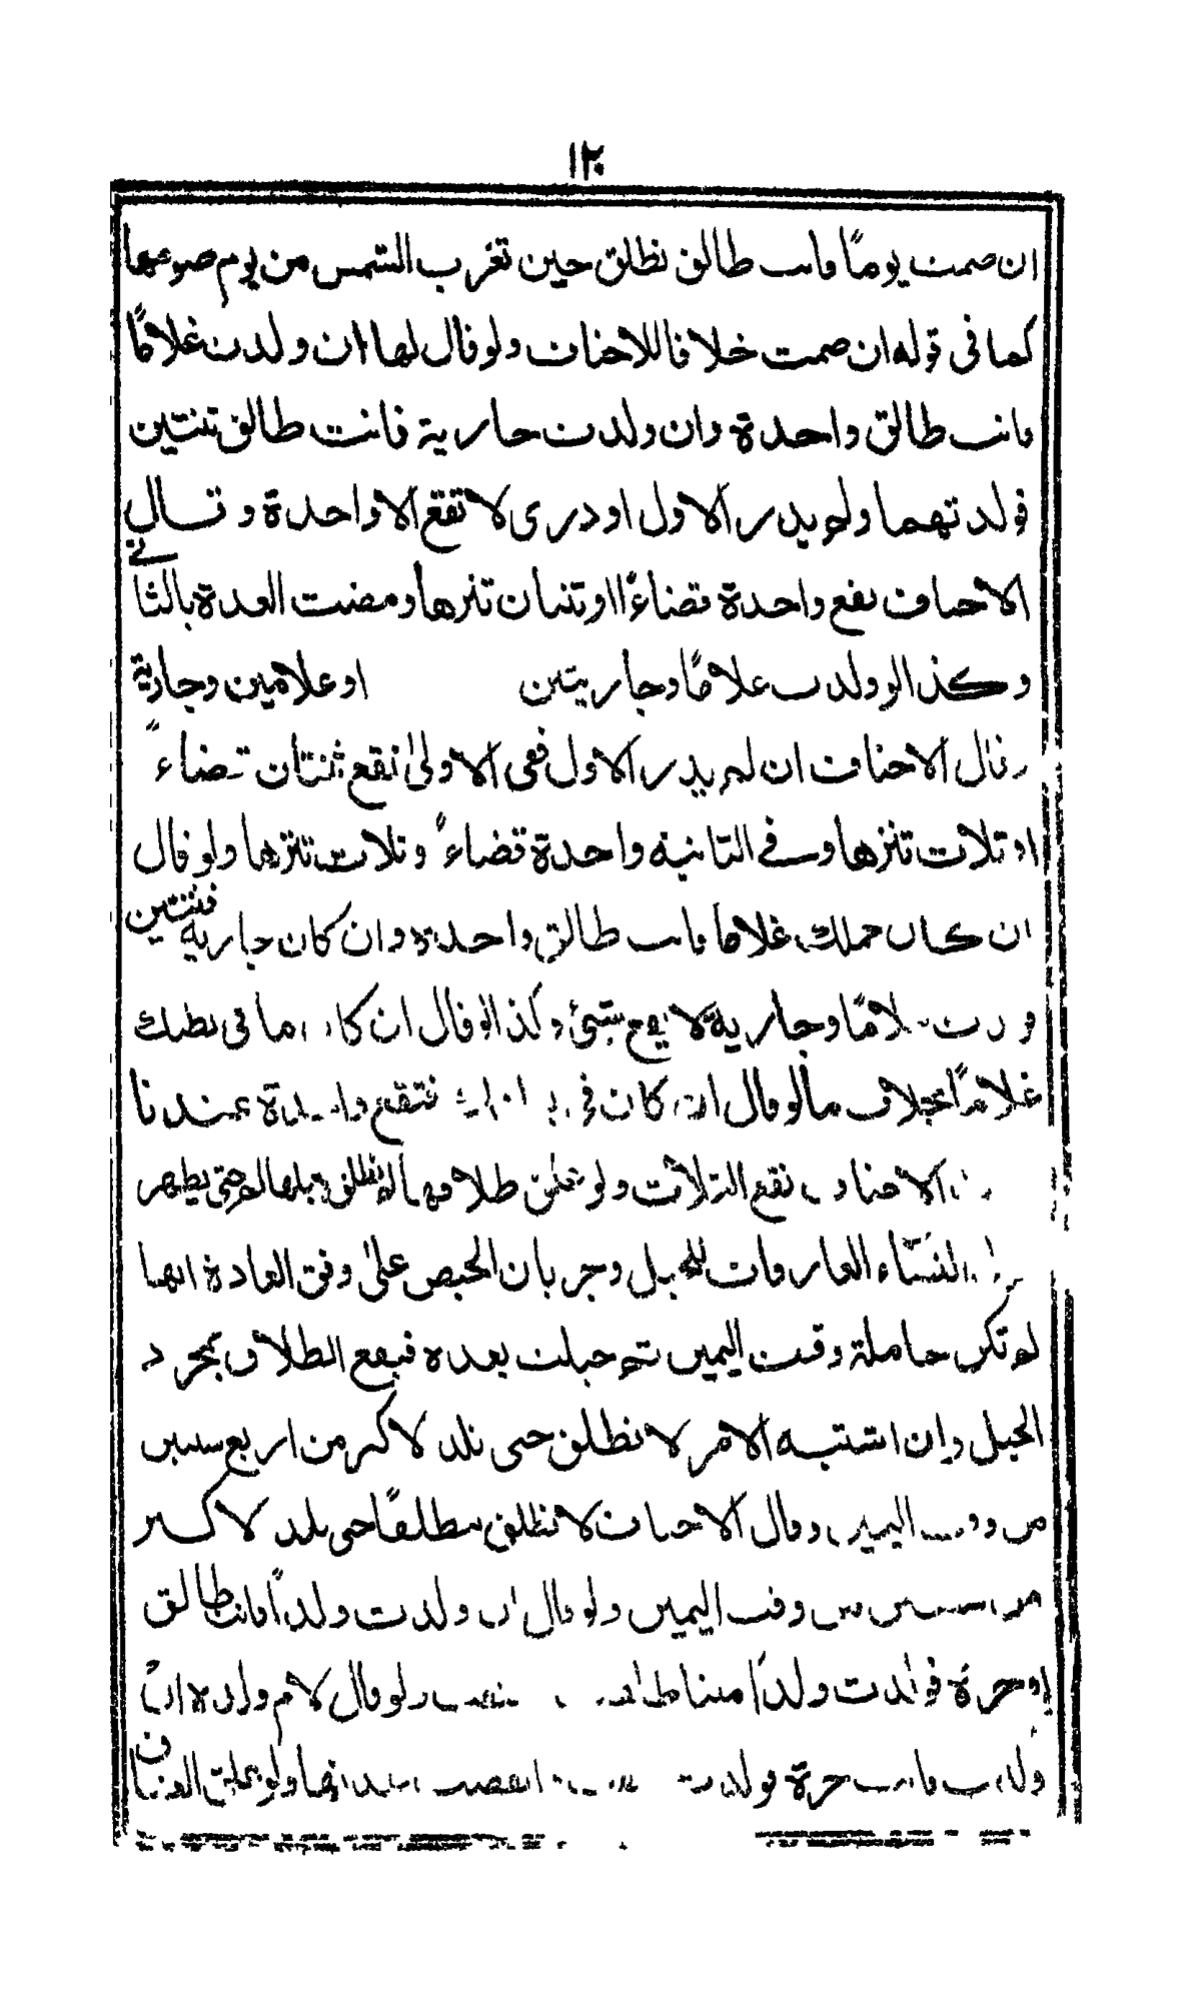 ١٢٠
ان صمت يوماً فانت طالق تطلق حين تغرب الشمس من يوم صومها
كما فى قوله ان صمت خلافا للاحناف ولو قال لها ان ولدت غلاماً
فانت طالق واحدة وان ولدت جارية فانت طالق ثنتين
فولدتهما ولم يدر الاول او درى لا تقع الا واحدة وقال
الاحناف يقع واحدة قضاءً او ثنتان تنزها ومضت العدة بالثانى
وكذا لو ولدت غلاماً وجاريتين او غلامين وجارية
وقال الاحناف ان لم يدر الاول ففى الاولى تقع ثنتان قضاءً
او ثلاث تنزها وفى الثانية واحدة قضاءً وثلاث تنزها ولو قال
ان كان حملك غلاما فانت طالق واحدة وان كان جارية فثنتين
غلاماً وجارية لا يقع شئ وكذا لو قال ان كان ما فى بطنك
غلاماً بخلاف ما لو قال ان كان فى فتقع واحدة عندنا
الاحناف تقع الثلاث ولو علق طلاقها لم تطلق حتى يظهر
النساء العارفات للحبل وجربان الحيض على وفق العادة انها
لم تكن حاملة وقت اليمين ثم حبلت بعده فيقع الطلاق بمجرد
الحبل وان اشتبه الامر لا تطلق حتى تلد لاكثر من اربع سنين
من وقت اليمين وقال الاحناف لا تطلق مطلقاً حتى تلد لاكثر
من سنتين من وقت اليمين ولو قال ان ولدت ولداً فانت طالق
او حرة فولدت ولداً ميتا ولو قال لام ولده ان
ولدت فانت حرة فولدت انقضت ولو علق